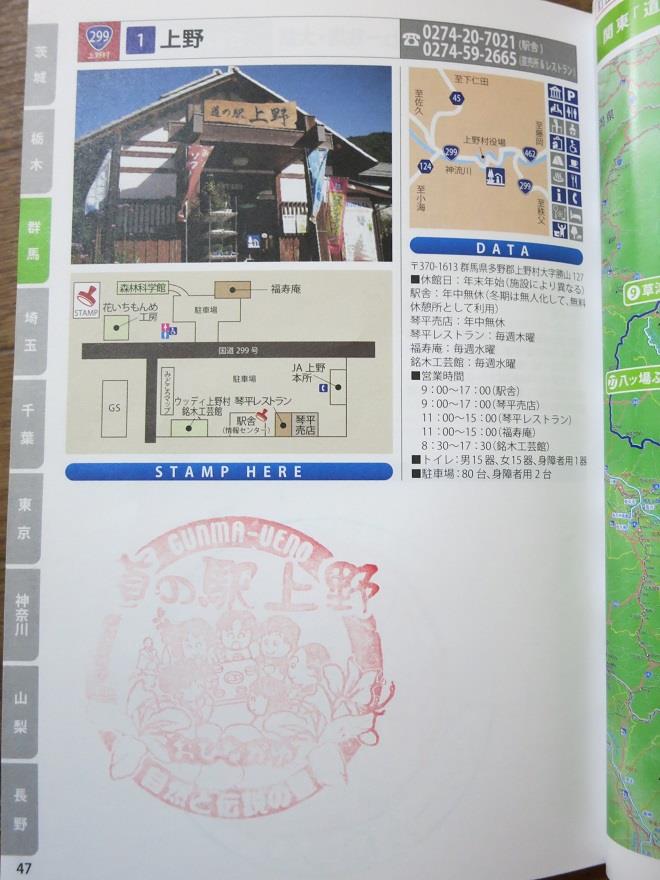 299
上野村
1
上野
☎0274-20-7021(駅舎)
0274-59-2665(直売所&レストラン)
道の駅 上野
至下仁田
至佐久
45
至藤岡
上野村役場
299
462
124
神流川
299
至小海
至秩父
P
DATA
〒370-1613 群馬県多野郡上野村大字勝山 127
■休館日:年末年始(施設により異なる)
駅舎:年中無休(冬期は無人化して、無料
休憩所として利用)
琴平売店:年中無休
琴平レストラン:毎週木曜
福寿庵:毎週水曜
銘木工芸館:毎週水曜
■営業時間
9:00~17:00(駅舎)
9:00~17:00(琴平売店)
11:00~15:00(琴平レストラン)
11:00~15:00(福寿庵)
8:30~17:30(銘木工芸館)
■トイレ:男15器、女15器、身障者用1器
■駐車場:80台、身障者用2台
STAMP
森林科学館
福寿庵
花いちもんめ
工房
駐車場
国道 299 号
GS
みどころマップ
駐車場
JA 上野
本所
ウッディ上野村
銘木工芸館
琴平レストラン
駅舎
(情報センター)
琴平
売店
STAMP HERE
GUNMA-UENO
道の駅 上野
茨城
栃木
群馬
埼玉
千葉
東京
神奈川
山梨
長野
47
関東「道
9草津
八ッ場ふ